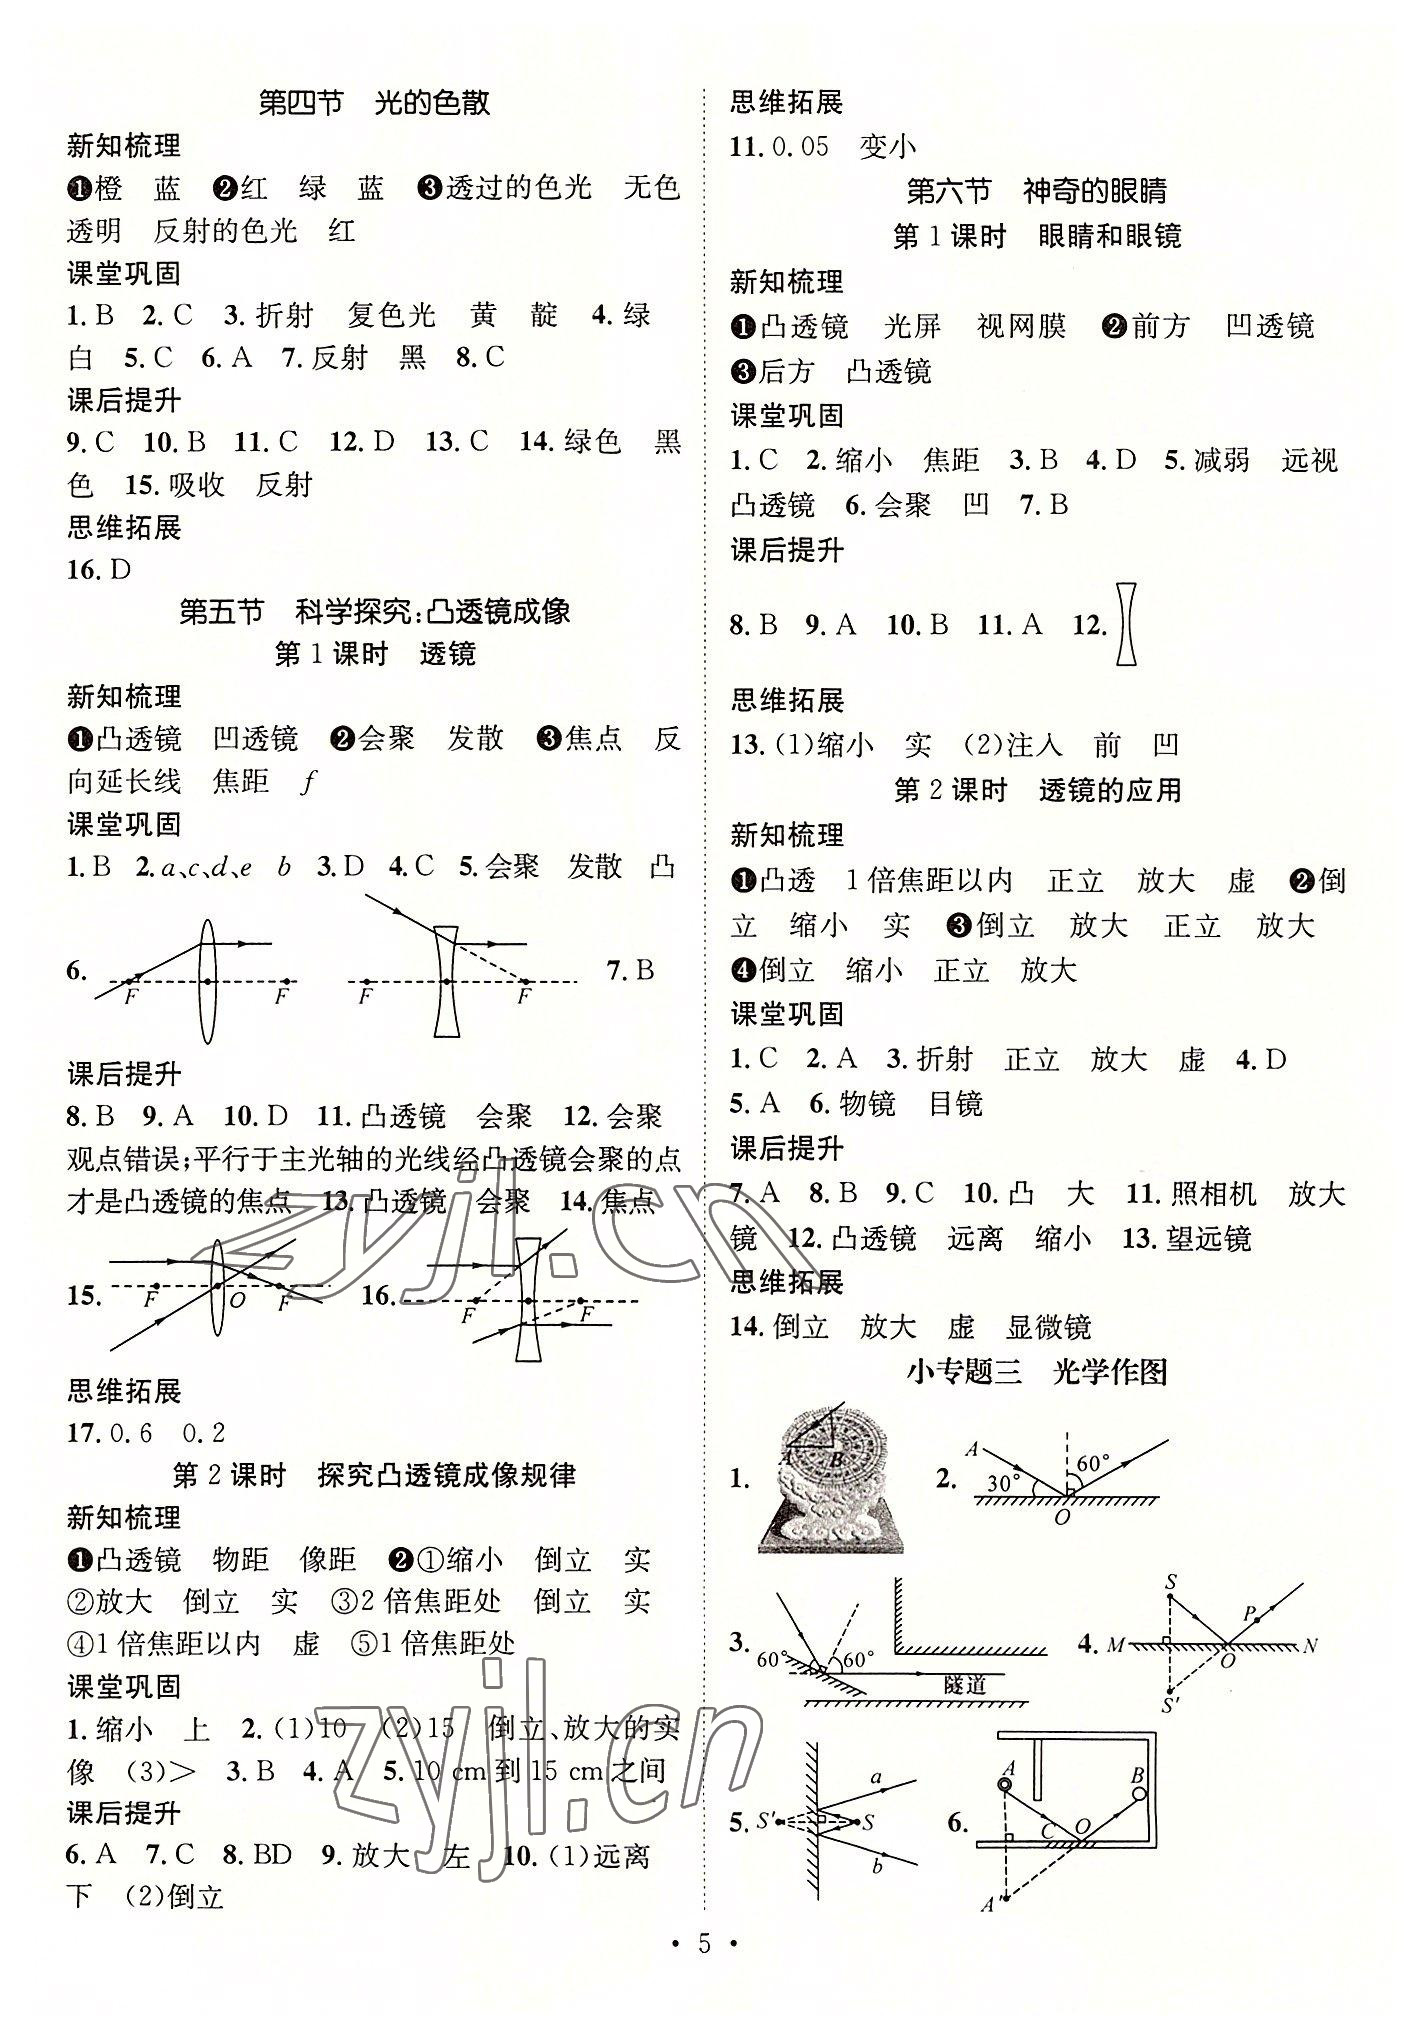 第四节　光的色散
新知梳理
❶橙　蓝　❷红　绿　蓝　❸透过的色光　无色
透明　反射的色光　红
课堂巩固
1.B　2.C　3.折射　复色光　黄　靛　4.绿
白　5.C　6.A　7.反射　黑　8.C
课后提升
9.C　10.B　11.C　12.D　13.C　14.绿色　黑
色　15.吸收　反射
思维拓展
16.D
第五节　科学探究:凸透镜成像
第1课时　透镜
新知梳理
❶凸透镜　凹透镜　❷会聚　发散　❸焦点　反
向延长线　焦距　f
课堂巩固
1.B　2.a、c、d、e　b　3.D　4.C　5.会聚　发散　凸
6.　F　F　F　F　7.B
课后提升
8.B　9.A　10.D　11.凸透镜　会聚　12.会聚
观点错误;平行于主光轴的光线经凸透镜会聚的点
才是凸透镜的焦点　13.凸透镜　会聚　14.焦点
15.　F　O　F　16.　F　F
思维拓展
17.0.6　0.2
第2课时　探究凸透镜成像规律
新知梳理
❶凸透镜　物距　像距　❷①缩小　倒立　实
②放大　倒立　实　③2倍焦距处　倒立　实
④1倍焦距以内　虚　⑤1倍焦距处
课堂巩固
1.缩小　上　2.(1)10　(2)15　倒立、放大的实
像　(3)>　3.B　4.A　5.10 cm到15 cm之间
课后提升
6.A　7.C　8.BD　9.放大　左　10.(1)远离
下　(2)倒立
思维拓展
11.0.05　变小
第六节　神奇的眼睛
第1课时　眼睛和眼镜
新知梳理
❶凸透镜　光屏　视网膜　❷前方　凹透镜
❸后方　凸透镜
课堂巩固
1.C　2.缩小　焦距　3.B　4.D　5.减弱　远视
凸透镜　6.会聚　凹　7.B
课后提升
8.B　9.A　10.B　11.A　12.
思维拓展
13.(1)缩小　实　(2)注入　前　凹
第2课时　透镜的应用
新知梳理
❶凸透　1倍焦距以内　正立　放大　虚　❷倒
立　缩小　实　❸倒立　放大　正立　放大
❹倒立　缩小　正立　放大
课堂巩固
1.C　2.A　3.折射　正立　放大　虚　4.D
5.A　6.物镜　目镜
课后提升
7.A　8.B　9.C　10.凸　大　11.照相机　放大
镜　12.凸透镜　远离　缩小　13.望远镜
思维拓展
14.倒立　放大　虚　显微镜
小专题三　光学作图
1.　A　B　2.　A　30°　60°　O
3.　60°　60°　隧道　4.　S　P　M　O　N　S′
5.　S′　S　a　b　6.　A　B　C　O　A′
• 5 •
zyjl.cn
zyjl.cn